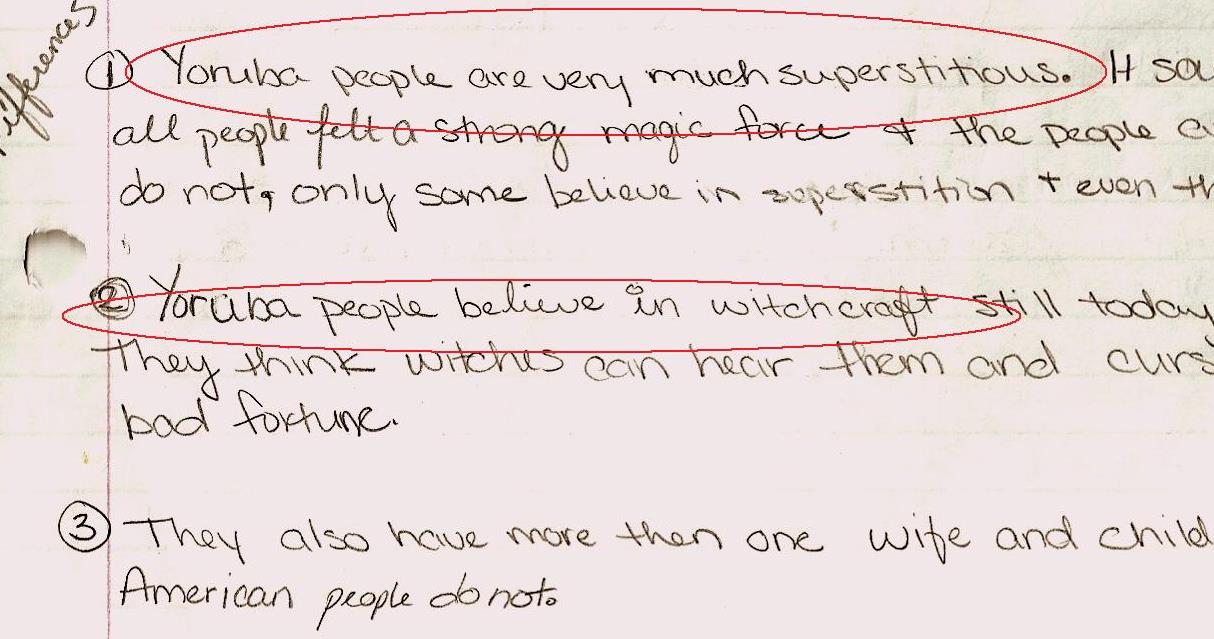 ifferences
① Yoruba people are very much superstitious. It sa
all people felt a strong magic force & the people a
do not, only some believe in superstition + even th
② Yoruba people believe in witchcraft still today
They think witches can hear them and curs
bad fortune.
③ They also have more then one wife and child
American people do not.